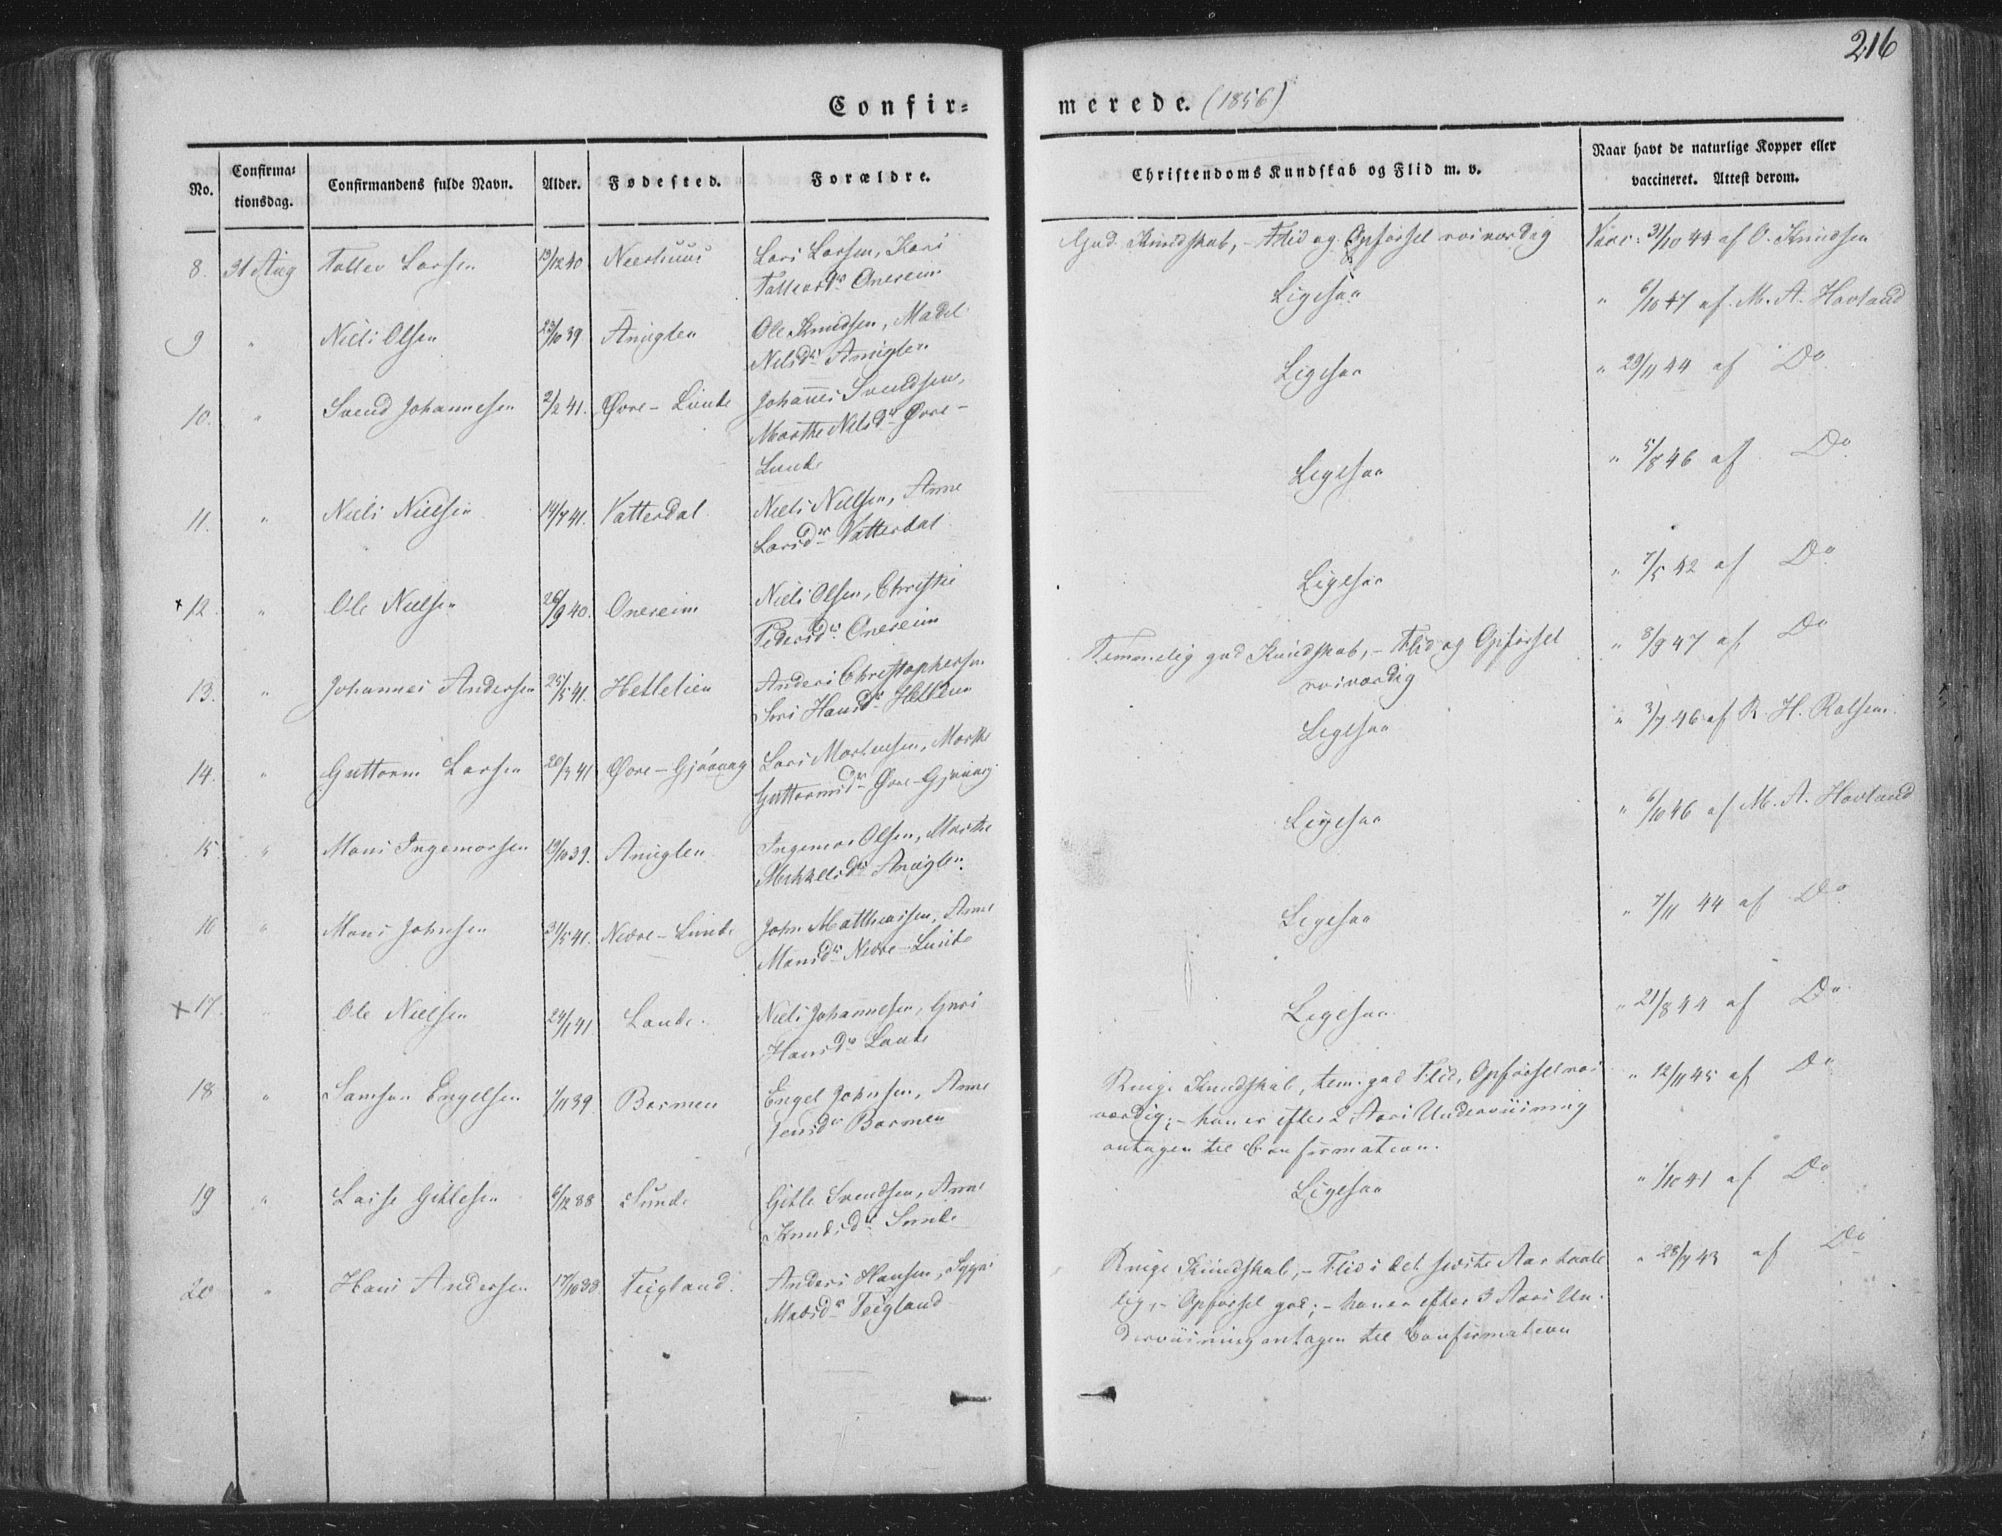 216
Confir=
merede. (1856)
No.
Confirma=
tionsdag.
Confirmandens fulde Navn.
Alder.
Fødested.
Forældre.
Christendoms Kundskab og Flid m. v.
Naar havt de naturlige Kopper eller
vaccineret. Attest derom.
8. 31 Aug Tollev Larsen 13/12 40 Neerhuus Lars Larsen, Kari
Tollevsdr Onereim
God Kundskab, – Flid og Opførsel roisværdig
Vacc: 31/10 44 af O. Knudsen
9 " Niels Olsen 23/10 39 Anuglen Ole Knudsen, Madel
Nilsdr Anuglen
Ligesaa
" 6/10 47 af M. A. Havland
10. " Svend Johannesen 2/2 41. Øvre – Lunde Johannes Svendsen,
Marthe Nilsdr Øvre –
Lunde
Ligesaa
" 29/11 44 af Do
11. " Niels Nielsen 14/7 41. Vatterdal Niels Nielsen, Anne
Larsdr Vatterdal
Ligesaa
" 5/8 46 af Do
+ 12. " Ole Nielsen 26/9 40. Onereim Niels Olsen, Christie
Pedersdr Onereim
Ligesaa
" 7/5 42 af Do
13. " Johannes Andersen 25/5 41. Hetletien Anders Christophersen
Hansdr
Temmelig god Kundskab, – Flid og Opførsel
roisværdig
" 8/9 47 af Do
14. " Guttorm Larsen 20/3 41 Øvre – Gjøvaag Lars Mortensen, Marthe
Guttormsdr Øvre – Gjøvaag
Ligesaa
" 3/7 46 af R. H. Ralsem
15 " Mons Ingemorsen 19/10 39. Anuglen Ingemor Olsen, Marthe
Mikkelsdr Anuglen.
Ligesaa
" 6/10 46 af M. A. Havland
16 " Mons Johnsen 31/5 41. Nedre – Lunde John Matthiassen, Anne
Monsdr Nedre – Lunde
Ligesaa
" 7/11 44 af Do
+ 17. " Ole Nielsen 24/1 41 Lande. Niels Johannesen, Guri
Hansdr Lande
Ligesaa
" 21/8 44 af Do
18 " Samson Engelsen 1/11 39 Barmen Engel Johnsen, Anne
Jonsdr Barmen
Ringe Kundskab, tem. god Flid, Opførsel rois
værdig; – han er efter 2 Aars Underviisning
antagen til Confirmation.
" 12/11 45 af Do
19 " Lasse Gitlesen 6/12 38 Sunde Gitle Svendsen, Anne
Knudsdr Sunde
Ligesaa
" 1/10 41 af Do
20 " Hans Andersen 17/10 38 Teigland Anders Hansen,
Teigland
Ringe Kundskab, – Flid i det sidste Aar taale
lig, – Opførsel god; – han er efter 3 Aars Un-
derviisning antagen til Confirmation
" 28/7 43 af Do